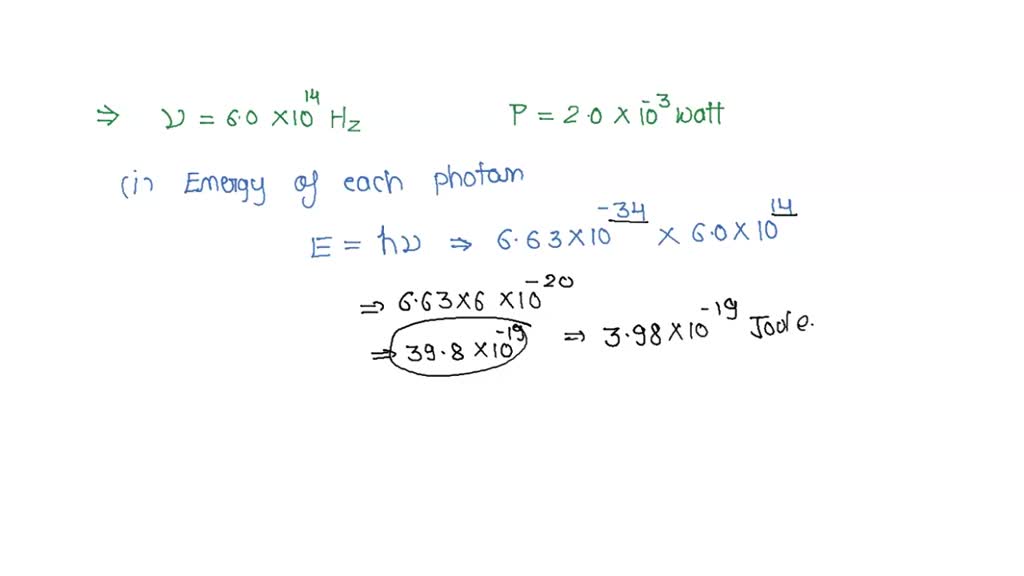 ⇒ ν = 6.0 × 10^14 Hz P = 2.0 × 10^-3 watt
(i) Energy of each photon
E = hν ⇒ 6.63 × 10^-34 × 6.0 × 10^14
⇒ 6.63 × 6 × 10^-20
⇒ 39.8 × 10^-19 ⇒ 3.98 × 10^-19 Joule.